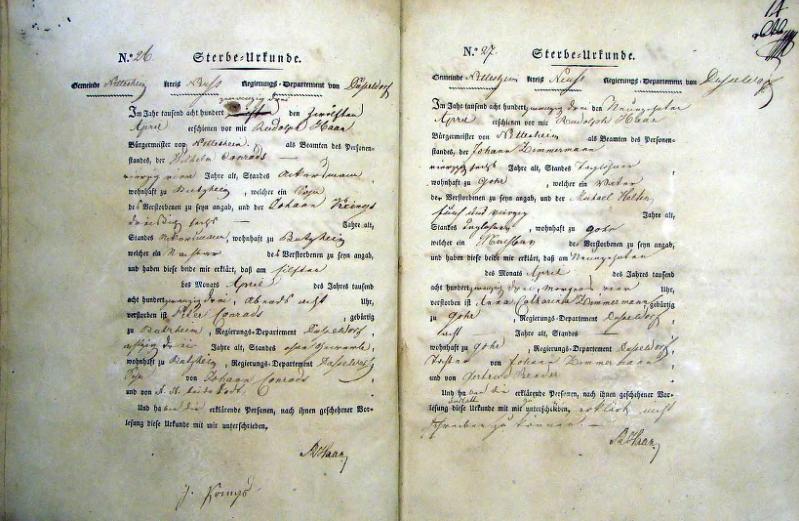 N.º 26 Sterbe-Urkunde.
Gemeinde Nettesheim Kreis Neuss Regierungs-Departement von Düsseldorf
zwanzig drei
Im Jahr tausend acht hundert den Zwölften
April erschienen vor mir Rudolph Haan
Bürgermeister von Nettesheim als Beamten des Personen-
standes, der Wilhelm Conrads
vierzig neun Jahre alt, Standes Ackersmann
wohnhaft zu Butzheim, welcher ein Sohn
des Verstorbenen zu seyn angab, und der Johann
dreißig sechs Jahre alt,
Standes Ackersmann, wohnhaft zu Butzheim
welcher ein Nachbar des Verstorbenen zu seyn angab,
und haben diese beide mir erklärt, daß am eilften
des Monats April des Jahres tausend
acht hundert zwanzig drei, Abends acht Uhr,
verstorben ist Peter Conrads gebürtig
zu Butzheim, Regierungs-Departement Düsseldorf
achtzig Jahre alt, Standes ohne Gewerbe
wohnhaft zu Butzheim, Regierungs-Departement Düsseldorf
Sohn von Johann Conrads
und von
Und haben die erklärende Personen, nach ihnen geschehener Vor-
lesung diese Urkunde mit mir unterschrieben,
RHaan
J.
14
N.º 27. Sterbe-Urkunde.
Gemeinde Nettesheim Kreis Neuss Regierungs-Departement von Düsseldorf
Im Jahr tausend acht hundert zwanzig drei den Neunzehnten
April erschienen vor mir Rudolph Haan
Bürgermeister von Nettesheim als Beamten des Personen-
standes, der Johann Zimmermann
vierzig sechs Jahre alt, Standes Taglöhner
wohnhaft zu Gohr, welcher ein Vater
der Verstorbenen zu seyn angab, und der Michael
fünf und vierzig Jahre alt,
Standes Taglöhner, wohnhaft zu Gohr
welcher ein Nachbar des Verstorbenen zu seyn angab,
und haben diese beide mir erklärt, daß am Neunzehnten
des Monats April des Jahres tausend
acht hundert zwanzig drei, Morgens neun Uhr,
verstorben ist Anna Catharina Zimmermann, gebürtig
zu Gohr, Regierungs-Departement Düsseldorf
sechs Jahre alt, Standes —
wohnhaft zu Gohr, Regierungs-Departement Düsseldorf,
Tochter von Johann Zimmermann
und von Gertrud
Und haben die erklärende Personen, nach ihnen geschehener Vor-
lesung diese Urkunde mit mir unterschrieben, erklärt nicht
schreiben zu können. —
RHaan